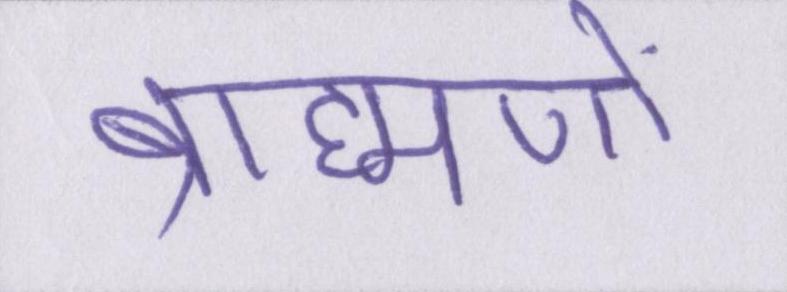 ब्राह्मणों